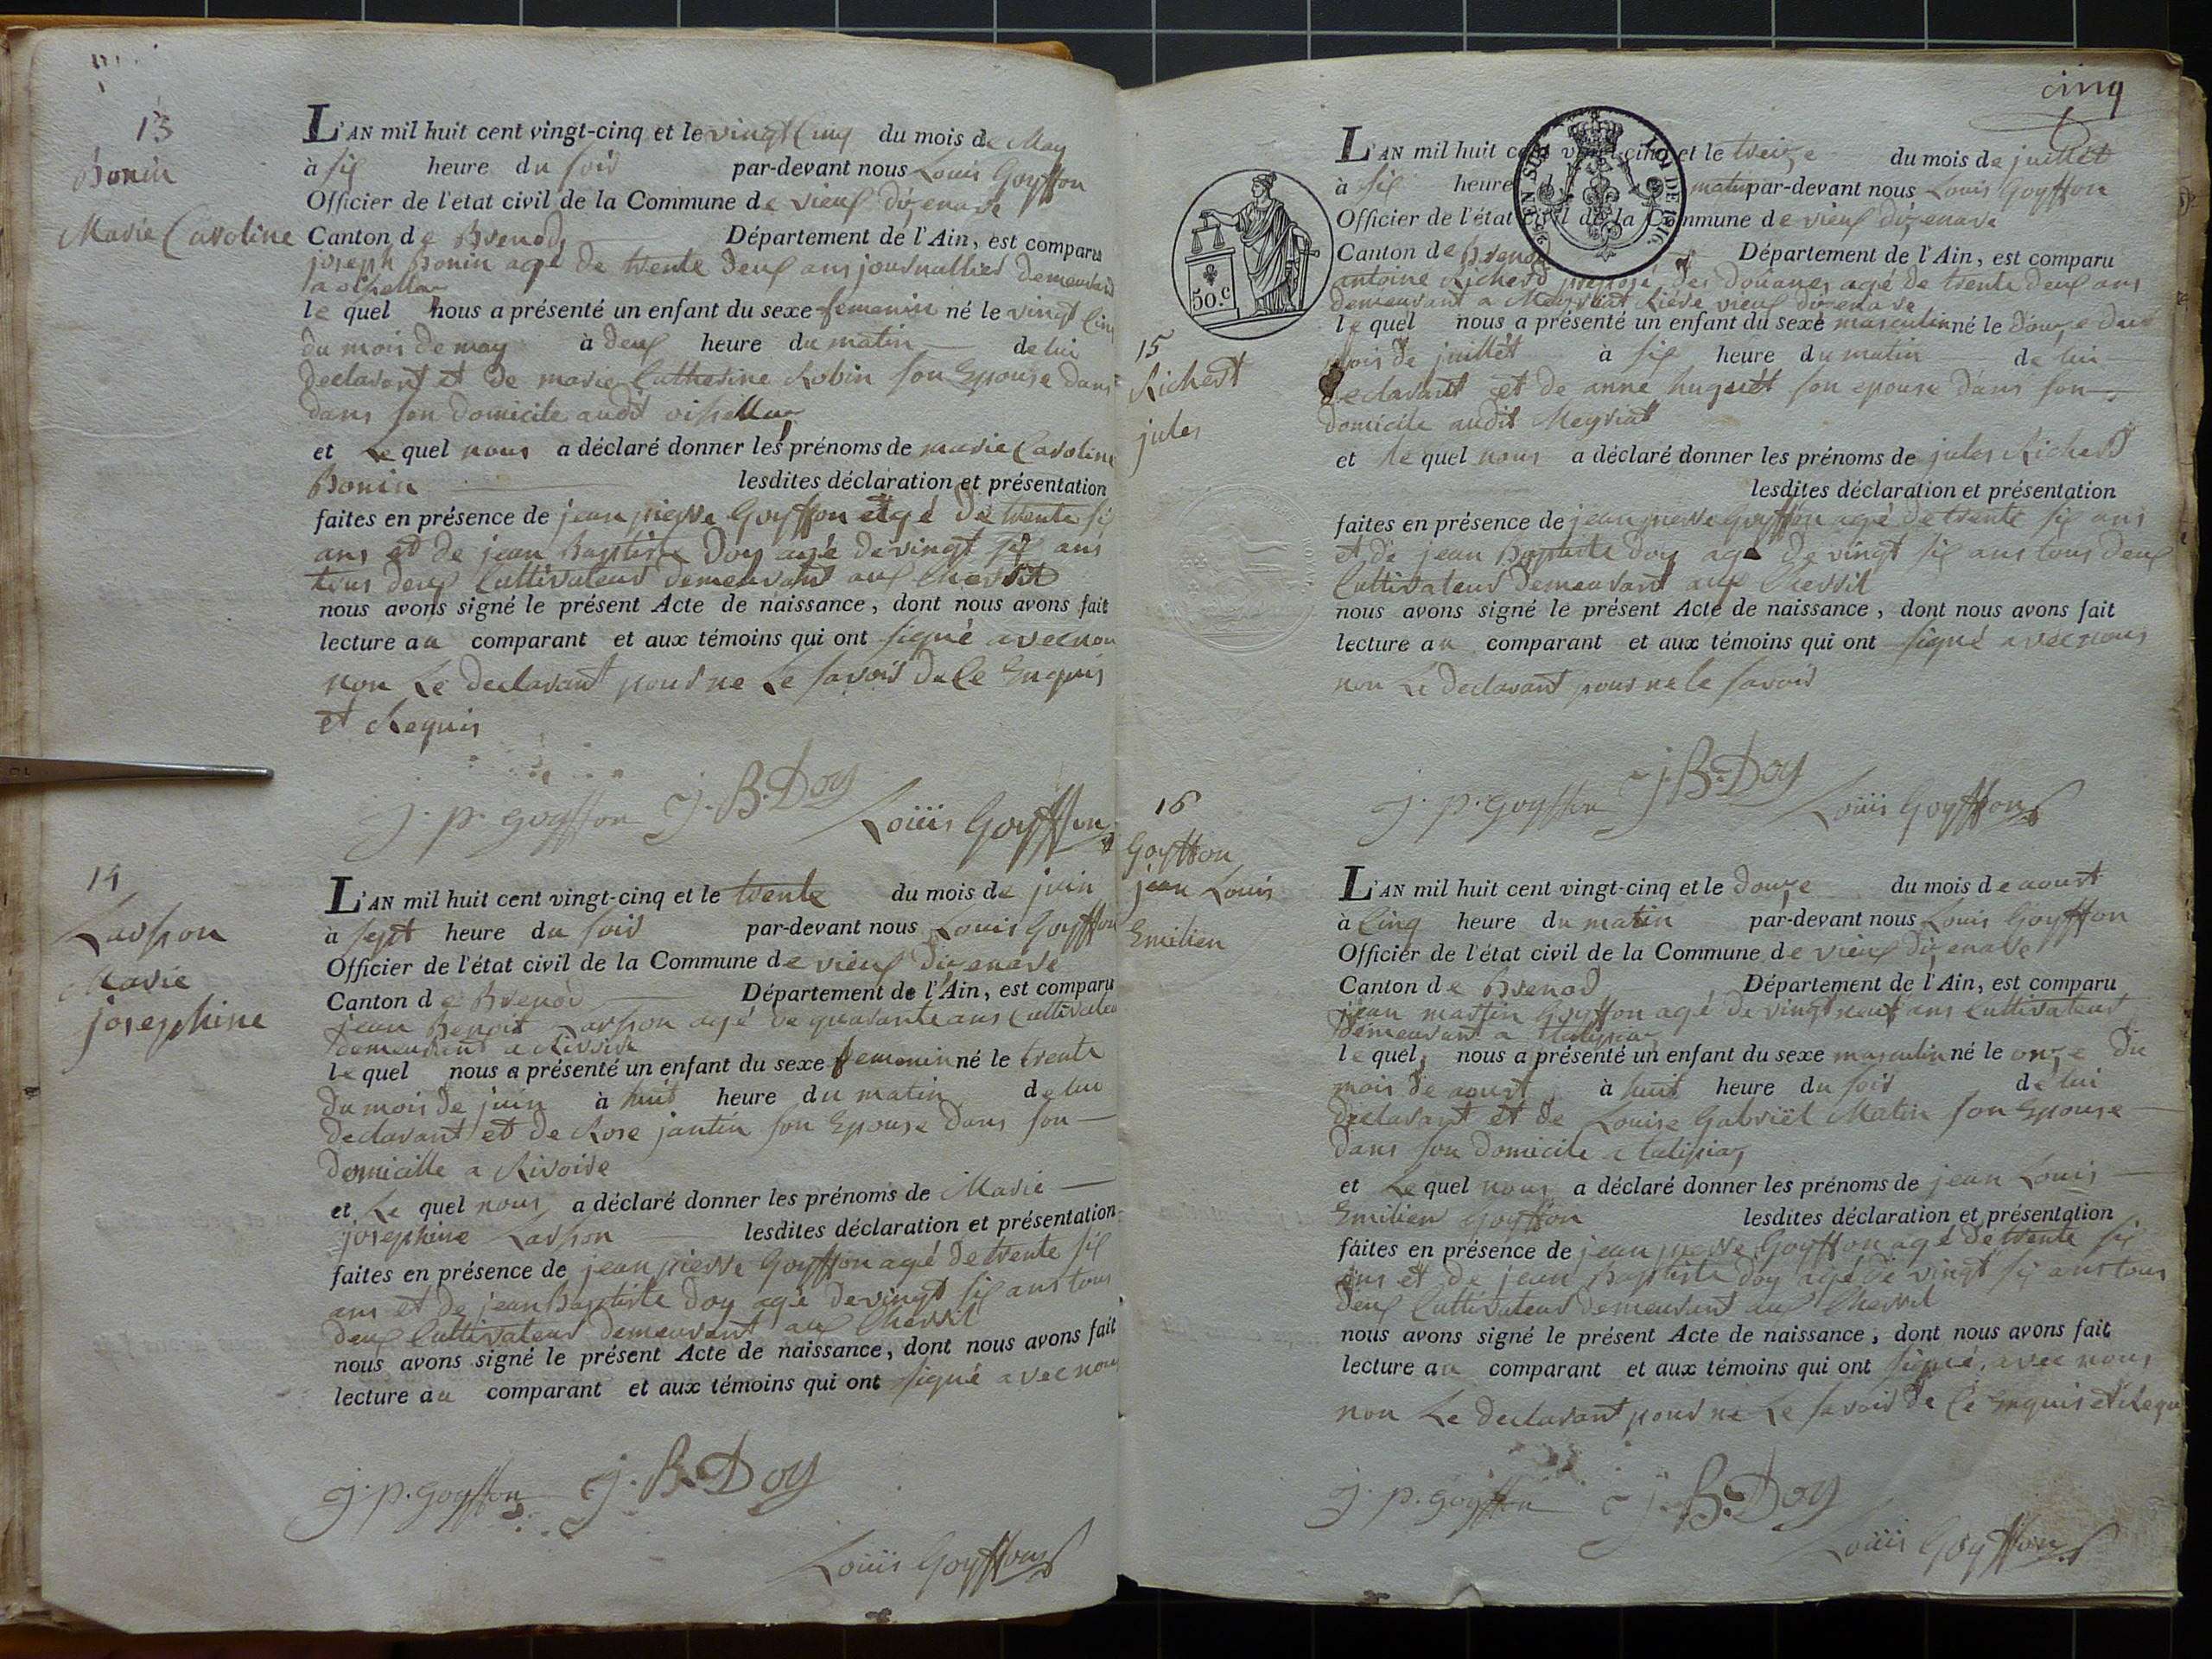 13
Bonin
Marie Caroline
L'AN mil huit cent vingt-cinq et le vingt Cinq du mois de May
à six heure du soir par-devant nous Louis Goyffon
Officier de l'état civil de la Commune de vieux dizenave
Canton de Brenod Département de l'Ain, est comparu
joseph Bonin agé de trente deux ans journallier demeurant
le quel nous a présenté un enfant du sexe femenin né le vingt Cinq
du mois de may à deux heure du matin de lui
declarant et de marie Catherine Robin son Epouse dans
dans son domicile audit
et Le quel nous a déclaré donner les prénoms de marie Caroline
Bonin lesdites déclaration et présentation
faites en présence de jean pierre Goyffon agé de trente six
ans et de jean Baptiste Doy agé de vingt six ans
tous deux Cultivateur demeurant aux
nous avons signé le présent Acte de naissance, dont nous avons fait
lecture au comparant et aux témoins qui ont signé avec nou
non Le declarant pour ne Le savoir de Ce Enquis
et Requis
j. p. goyffon J. B. Doy Louis Goyffon
14
Larson
Marie
josephine
L'AN mil huit cent vingt-cinq et le trente du mois de juin
à sept heure du soir par-devant nous Louis Goyffon
Officier de l'état civil de la Commune de vieux dizenave
Canton de Brenod Département de l'Ain, est comparu
jean Benoit Larson agé de quarante ans Cultivateu
demeurant a Rivoire
le quel nous a présenté un enfant du sexe femenin né le trente
du mois de juin à huit heure du matin de lui
declarant et de Rose jantin son Epouse dans son
domicille a Rivoire
et Le quel nous a déclaré donner les prénoms de Marie
josephine Larson lesdites déclaration et présentation
faites en présence de jean pierre Goyffon agé de trente six
ans et de jean Baptiste doy agé de vingt six ans tous
deux Cultivateur demeurant aux
nous avons signé le présent Acte de naissance, dont nous avons fait
lecture au comparant et aux témoins qui ont signé avec nou
j. p. goyffon J. B. Doy
Louis Goyffon
cinq
50.c
LOI DE 1816.
15
Richert
jules
L'AN mil huit cent vingt-cinq et le treize du mois de juillet
à six heure du matin par-devant nous Louis Goyffon
Officier de l'état civil de la Commune de vieux dizenave
Canton de Brenod Département de l'Ain, est comparu
antoine Richerd preposé des Douanes agé de trente deux ans
demeurant a Meyriat vieux dizenave
le quel nous a présenté un enfant du sexe masculin né le douze du
mois de juillet à six heure du matin de lui
declarant et de anne huguet son epouse dans son
domicile audit Meyriat
et le quel nous a déclaré donner les prénoms de jules Richerd
lesdites déclaration et présentation
faites en présence de jean pierre Goyffon agé de trente six ans
et de jean Baptiste doy agé de vingt six ans tous deux
Cultivateur demeurant aux
nous avons signé le présent Acte de naissance, dont nous avons fait
lecture au comparant et aux témoins qui ont signé avec nous
non Le declarant pour ne le savoir
j. p. goyffon J. B. Doy Louis Goyffon
16
Goyffon
jean Louis
Emilien
L'AN mil huit cent vingt-cinq et le douze du mois de aoust
à Cinq heure du matin par-devant nous Louis Goyffon
Officier de l'état civil de la Commune de vieux dizenave
Canton de Brenod Département de l'Ain, est comparu
jean martin Goyffon agé de vingt neuf ans Cultivateur
demeurant a
le quel nous a présenté un enfant du sexe masculin né le onze du
mois de aoust à huit heure du soir de lui
declarant et de Louise Gabriël Matin son Epouse
dans son domicile
et Le quel nous a déclaré donner les prénoms de jean Louis
Emilien Goyffon lesdites déclaration et présentation
faites en présence de jean pierre Goyffon agé de trente six
ans et de jean Baptiste doy agé de vingt six ans tous
deux Cultivateur demeurant aux
nous avons signé le présent Acte de naissance, dont nous avons fait
lecture au comparant et aux témoins qui ont signé avec nous
non Le declarant pour ne Le savoir de Ce Enquis et Requ
j. p. goyffon J. B. Doy
Louis Goyffon